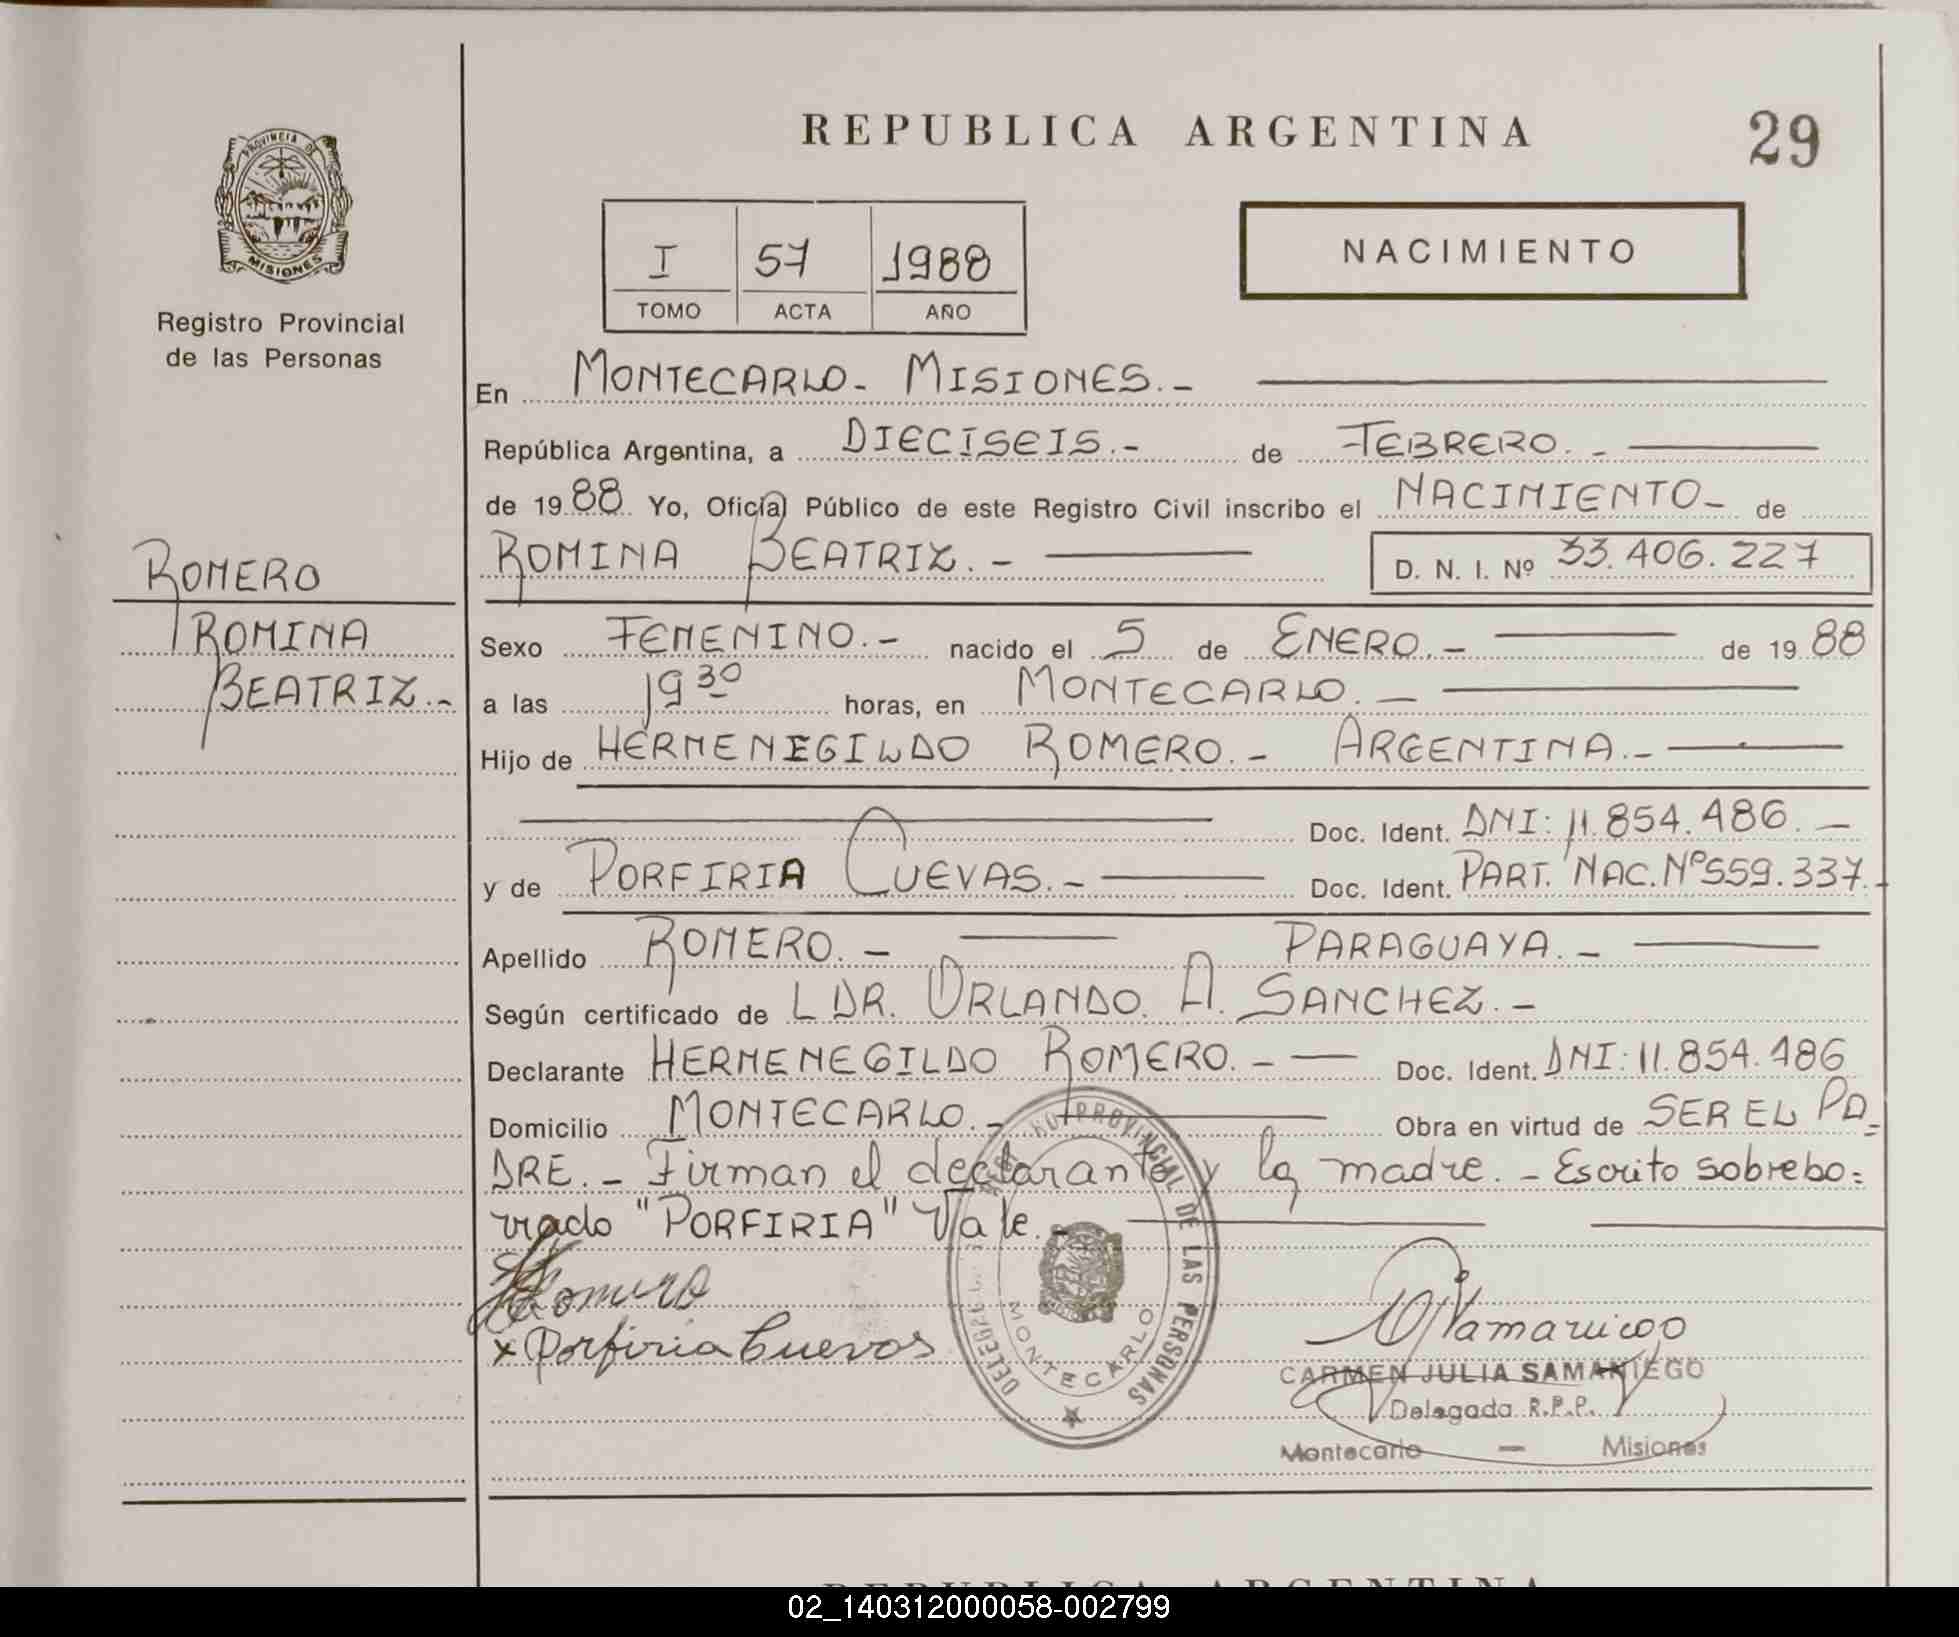 REPUBLICA ARGENTINA
29
PROVINCIA DE
MISIONES
Registro Provincial
de las Personas
I 57 1988
TOMO ACTA AÑO
NACIMIENTO
En MONTECARLO- MISIONES.-
República Argentina, a DIECISEIS.- de FEBRERO.-
de 1988 Yo, Oficial Público de este Registro Civil inscribo el NACIMIENTO- de
ROMINA BEATRIZ.- D. N. I. Nº 33.406.227
ROMERO
ROMINA
BEATRIZ.-
Sexo FEMENINO.- nacido el 5 de ENERO.- de 1988
a las 19 30 horas, en MONTECARLO.-
Hijo de HERMENEGILDO ROMERO.- ARGENTINA.-
Doc. Ident. DNI: 11.854.486.-
y de PORFIRIA CUEVAS.- Doc. Ident. PART. NAC. Nº 559.337.-
Apellido ROMERO.- PARAGUAYA.-
Según certificado de L DR. ORLANDO. A. SANCHEZ.-
Declarante HERMENEGILDO ROMERO.- Doc. Ident. DNI: 11.854.486
Domicilio MONTECARLO.- Obra en virtud de SER EL PA=
DRE.- Firman el declarante y la madre.- Escrito sobrebo=
rrado "PORFIRIA" Vale.-
Romero
x Porfiria Cuevas
PROVINCIAL DE LAS PERSONAS
MONTECARLO
CARMEN JULIA SAMANIEGO
Delegada R.P.P.
Montecarlo - Misiones
REPUBLICA ARGENTINA
02_140312000058-002799